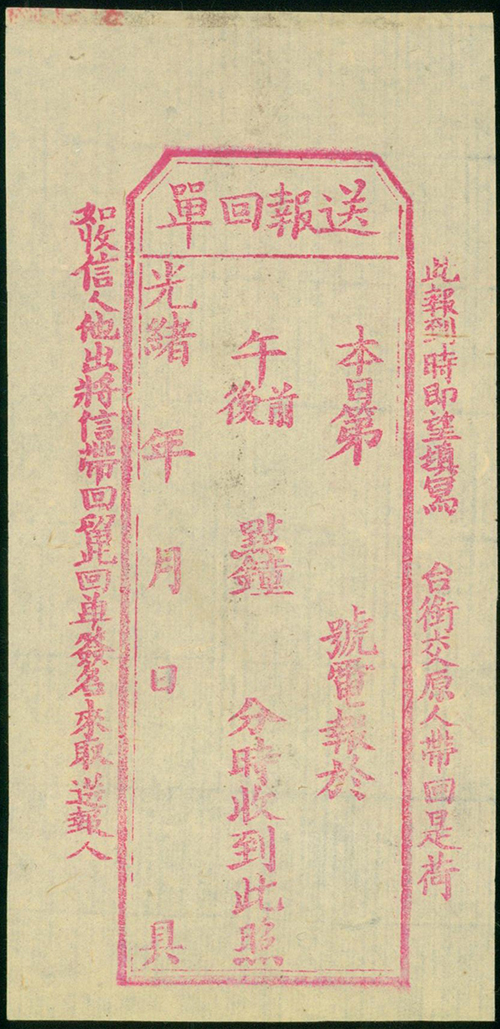 送報回單
此報到時即望塡寫 台銜交原人帶回是荷
本日第 號電報於
午前後 點鐘 分時收到此照
光緒 年 月 日 具
如收信人他出將信帶回留此回单簽名來取送報人